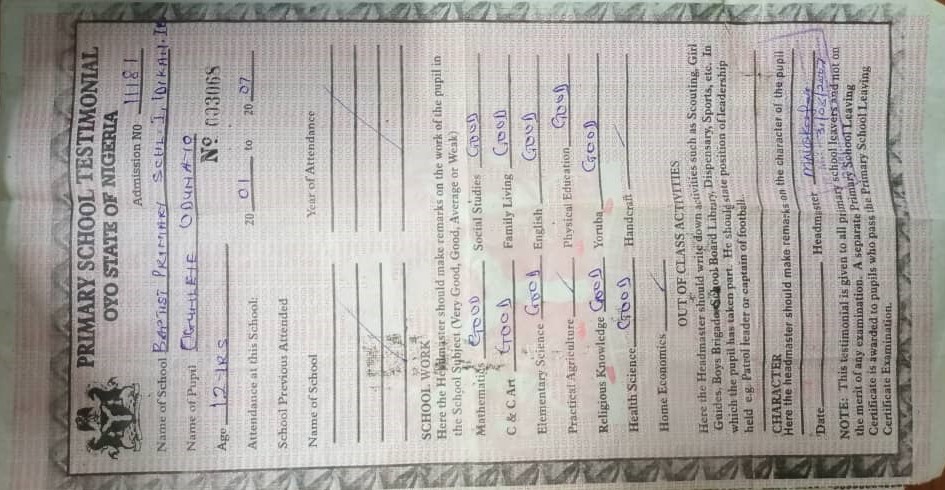 PRIMARY SCHOOL TESTIMONIAL
OYO STATE OF NIGERIA
Admission NO 1181
Name of School BAPTIST PRIMARY SCHL. I. IDIKAN. Ib
Name of Pupil OGUNLEIE ODUNAYO
Age 12 YRS No 033068
Attendance at this School: 20 01 to 20 07
School Previous Attended
Name of School Year of Attendance
SCHOOL WORK
Here the Headmaster should make remarks on the work of the pupil in
the School Subject (Very Good, Good, Average or Weak)
Mathematics GOOD Social Studies GOOD
C & C Art GOOD Family Living GOOD
Elementary Science GOOD English GOOD
Practical Agriculture Physical Education GOOD
Religious Knowledge GOOD Yoruba GOOD
Health Science GOOD Handcraft
Home Economics
OUT OF CLASS ACTIVITIES
Here the Headmaster should write down activities such as Scouting, Girl
Guides, Boys Brigade School Board Library, Dispensary, Sports, etc. In
which the pupil has taken part. He should state position of leadership
held e.g. Patrol leader or captain of football.
CHARACTER
Here the headmaster should make remarks on the character of the pupil
Date Headmaster
NOTE: This testimonial is given to all primary school leavers and not on
the merit of any examination. A separate Primary School Leaving
Certificate is awarded to pupils who pass the Primary School Leaving
Certificate Examination.